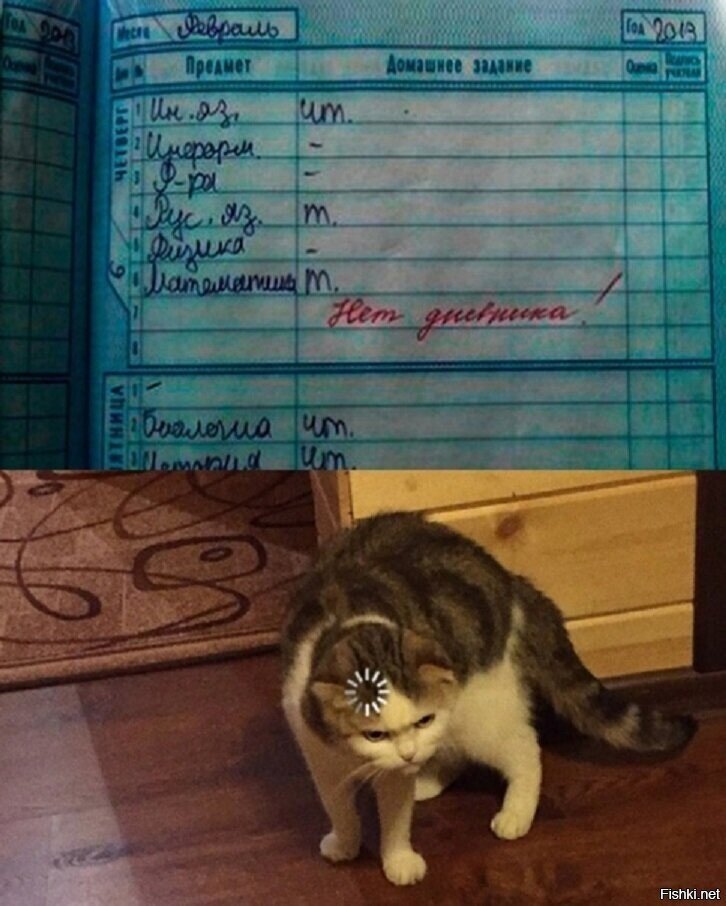 Год 2013
Месяц Февраль
Год 2013
Оценка Подпись учителя
Дни № Предмет Домашнее задание Оценка Подпись учителя
ЧЕТВЕРГ
1 Ин. яз. чт.
2 Информ. -
3 Ф-ра -
4 Рус. яз. т.
5 Физика -
6 Математика т.
7 Нет дневника!
8
6
ПЯТНИЦА
1 -
2 Биология чт.
3 История чт.
Fishki.net